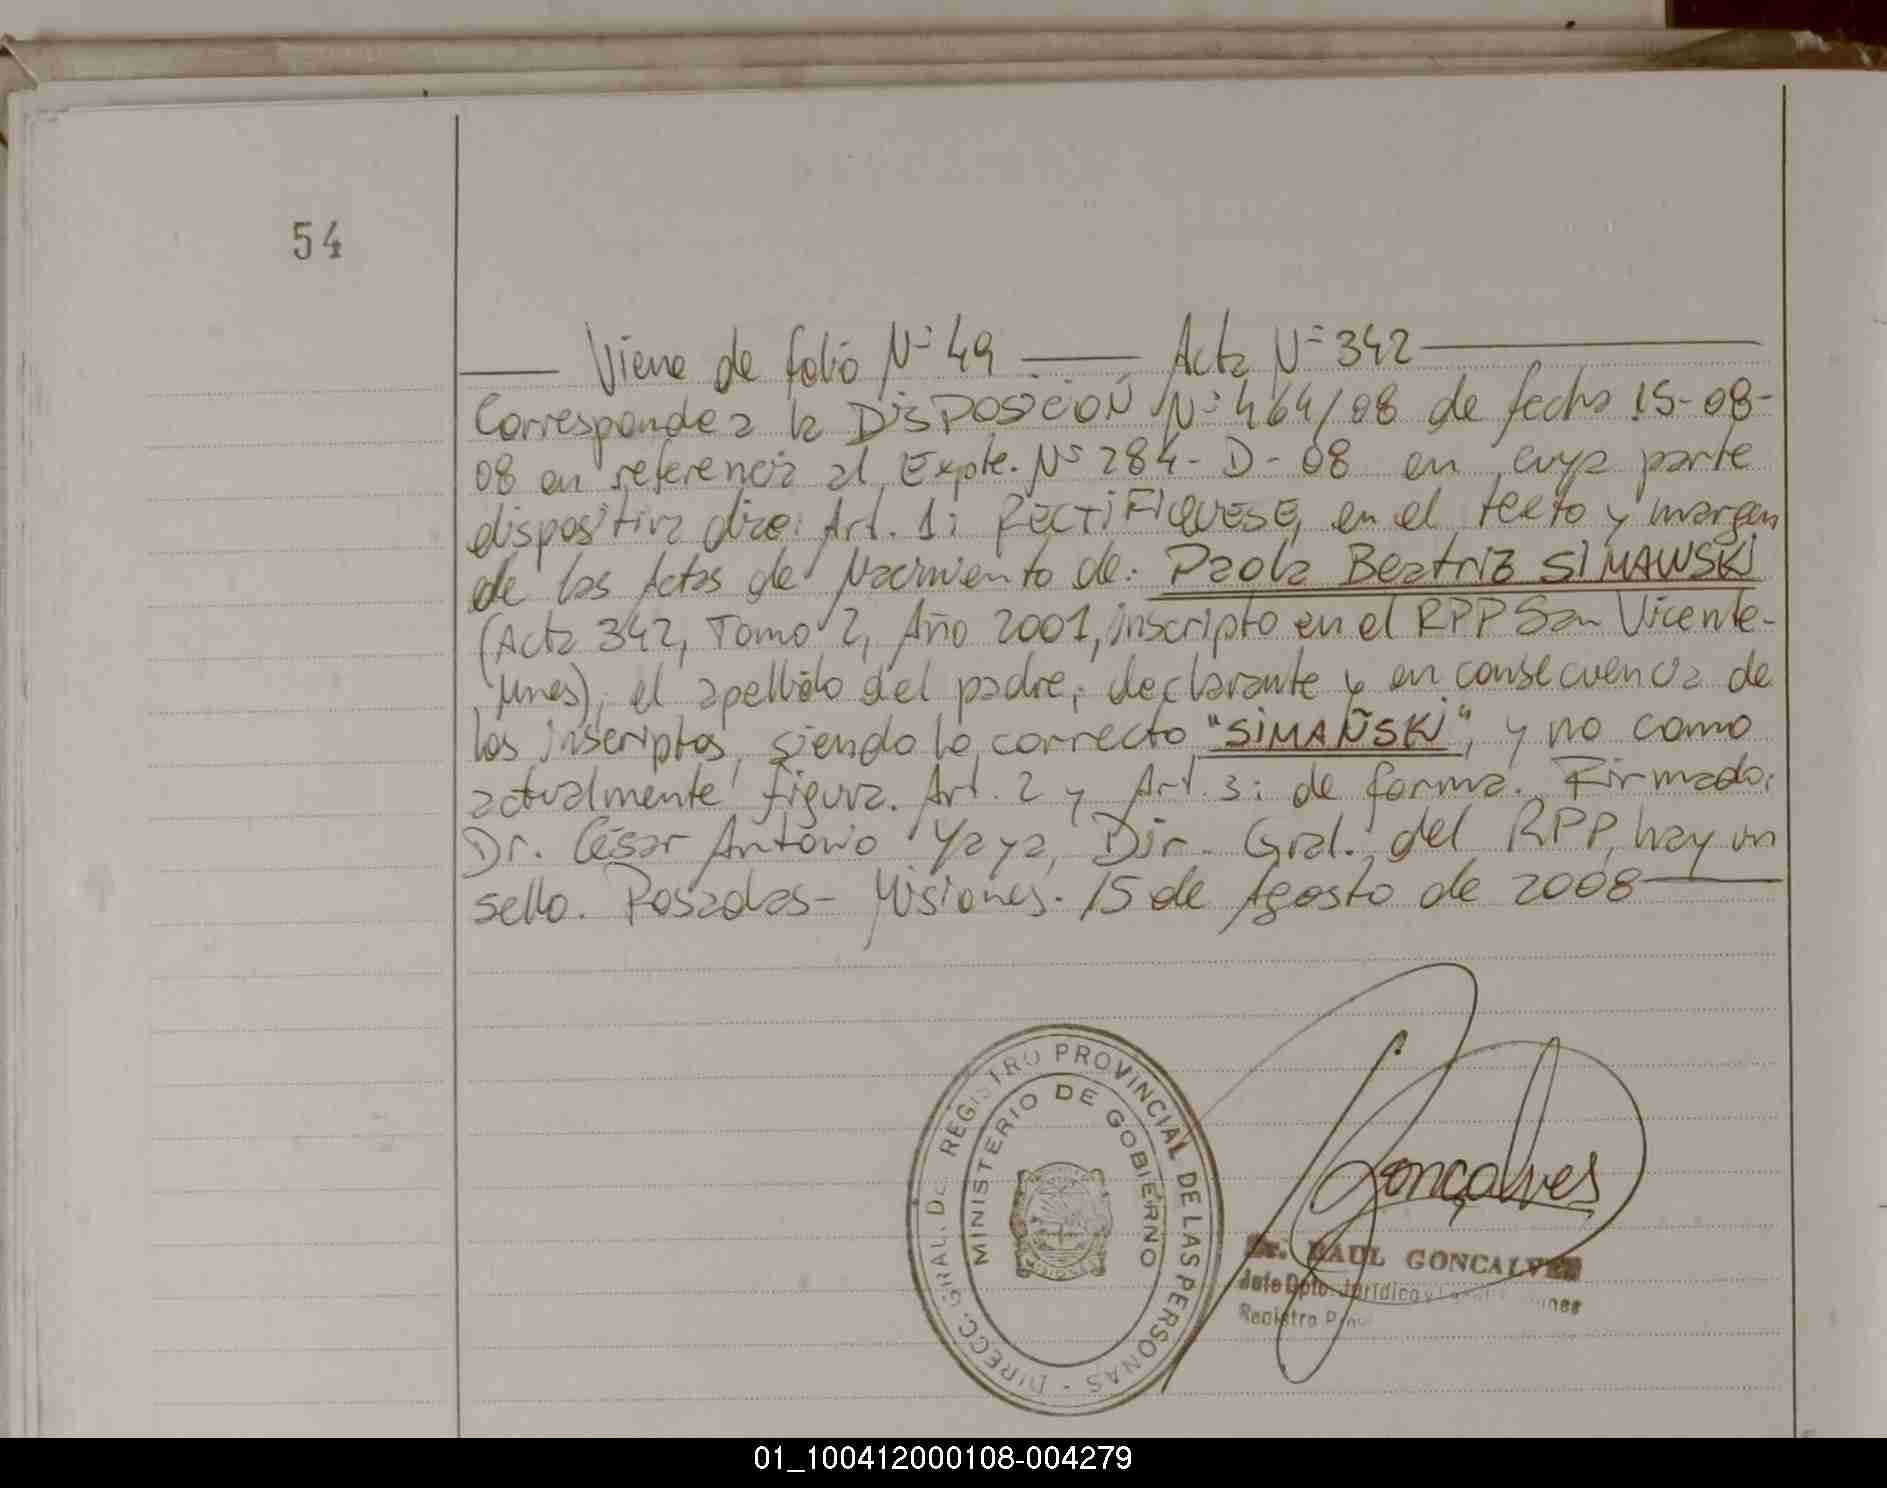 54
Viene de folio Nº 49 Acta Nº 342
Corresponde a la DISPOSICION Nº 464/08 de fecha 15-08-
08 en referencia al Expte. Nº 284-D-08 en cuya parte
dispositiva dice: Art. 1: RECTIFIQUESE, en el texto y margen
de las Actas de Nacimiento de: Paola Beatriz SIMAWSKI
(Acta 342, Tomo 2, Año 2001, inscripto en el RPP San Vicente-
Mnes), el apellido del padre, declarante y en consecuencia de
los inscriptos, siendo lo correcto "SIMAÑSKI", y no como
actualmente figura. Art. 2 y Art. 3: de forma. Firmado:
Dr. César Antonio Yaya, Dir. Gral. del RPP, hay un
sello. Posadas- Misiones. 15 de Agosto de 2008
DIRECC. GRAL. DE REGISTRO PROVINCIAL DE LAS PERSONAS -
MINISTERIO DE GOBIERNO
MISIONES
Goncalves
Dr. RAUL GONCALVES
Jefe Dpto. Jurídico y
Registro
01_100412000108-004279